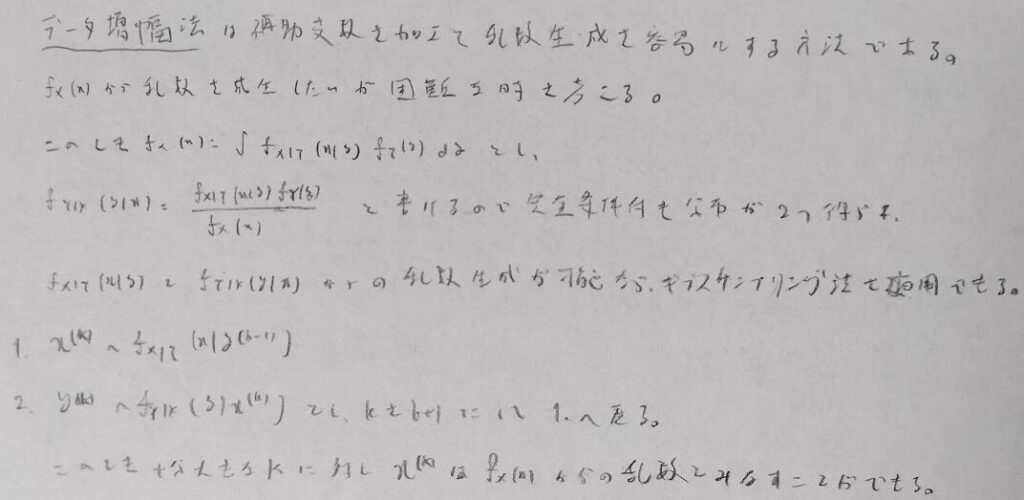 データ増幅法は補助変数を加えて乱数生成を容易にする方法である。
fx(x)から乱数を生成したいが困難な時を考える。
このとき fx(x) = ∫ fx|Y(x|y) fY(y) dy とし、
fY|X(y|x) = fx|Y(x|y) fY(y) / fx(x) と書けるので完全条件付き分布が2つ得られ、
fx|Y(x|y)とfY|X(y|x)からの乱数生成が可能なら、ギブスサンプリング法を適用できる。
1. x^(k) ~ fx|Y(x|y^(k-1))
2. y^(k) ~ fY|X(y|x^(k)) とし、kをk+1にして 1. へ戻る。
このとき十分大きなkに対し x^(k)はfx(x)からの乱数とみなすことができる。